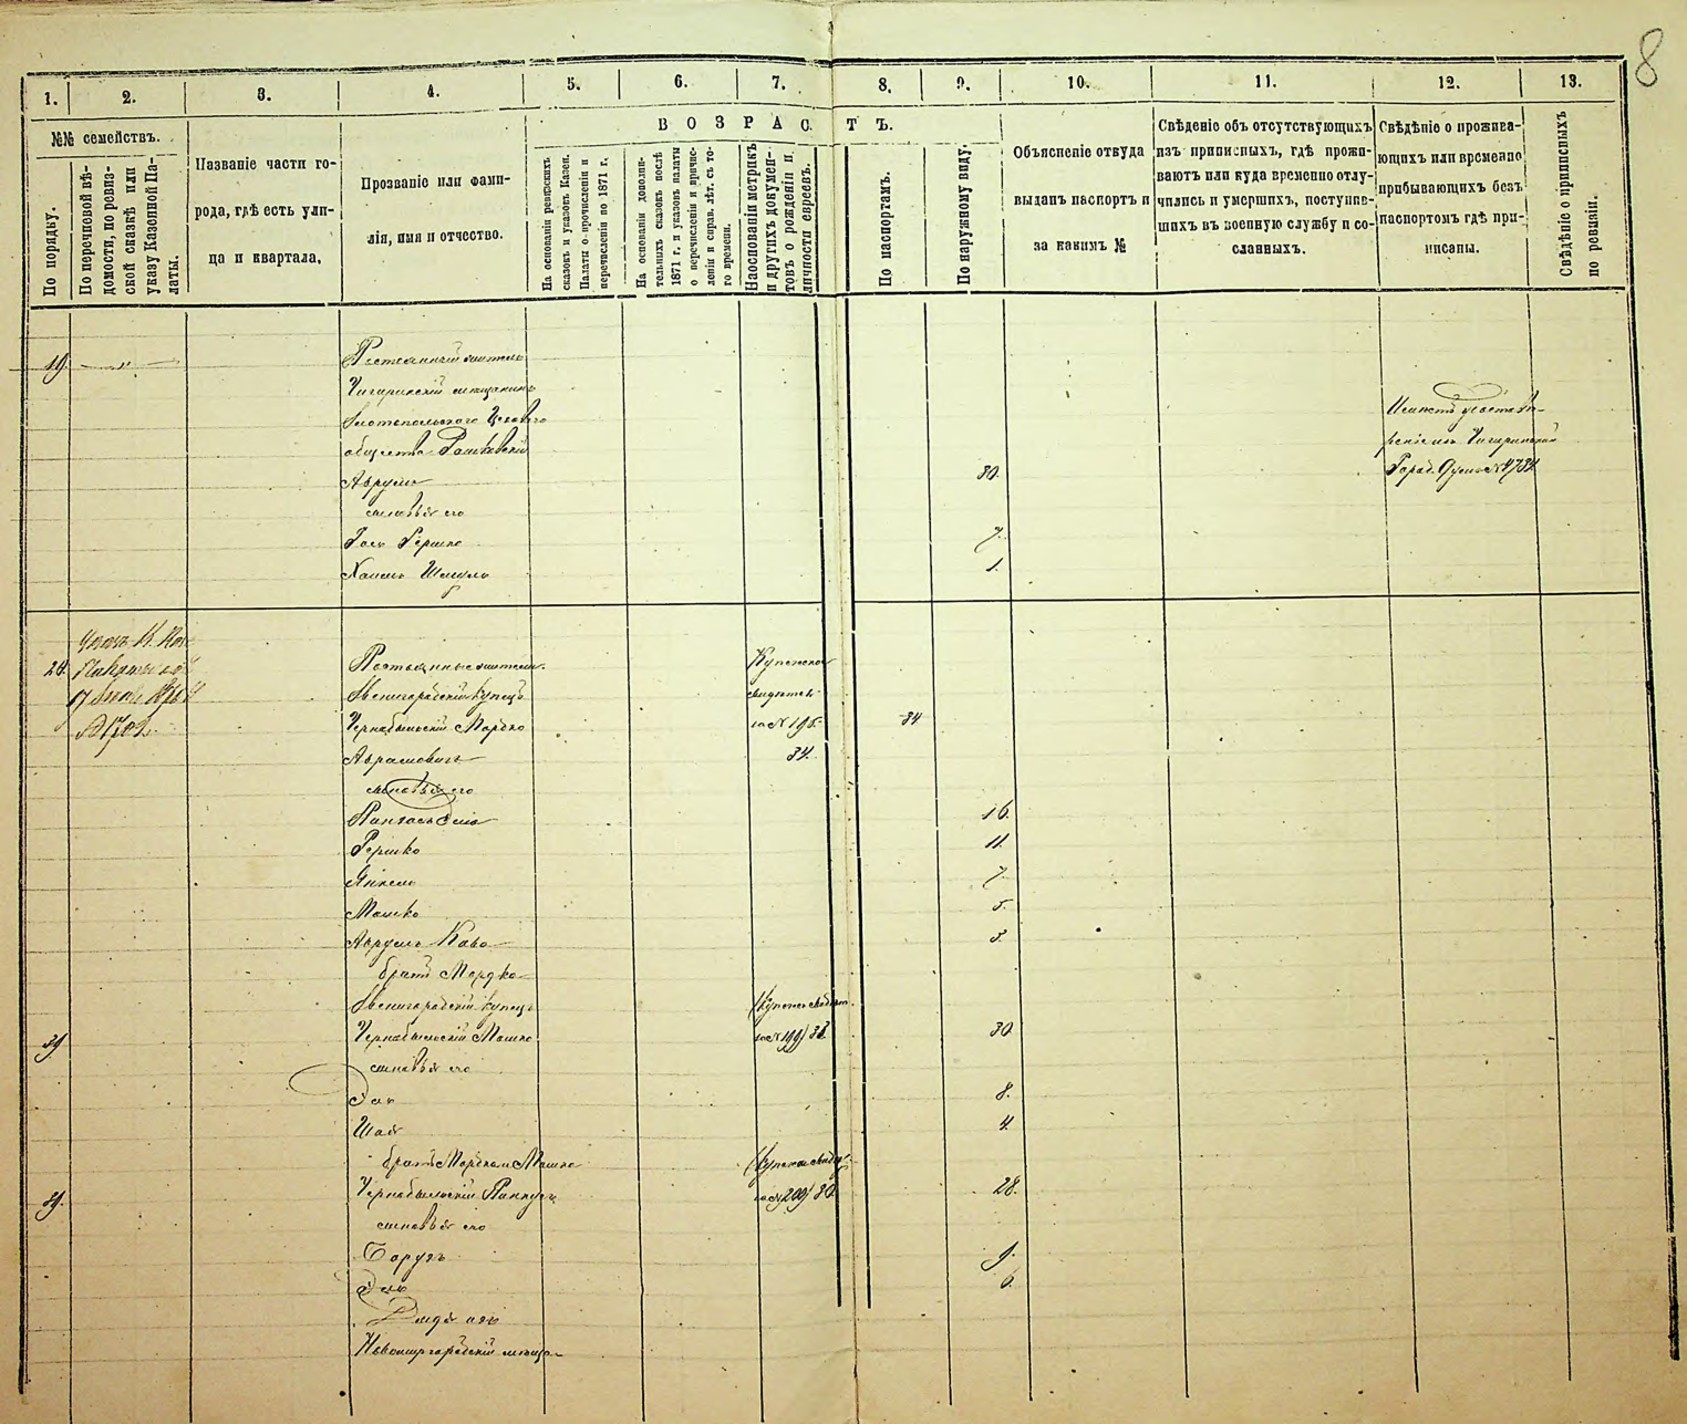 8
1. 2. 3. 4. 5. 6. 7. 8. 9. 10. 11. 12. 13.
№№ семействъ.
По порядку.
По перечневой вѣ-
домости, по ревиз-
ской сказкѣ или
указу Казенной Па-
латы.
Названіе части го-
рода, гдѣ есть ули-
ца и квартала.
Прозваніе или фами-
лія, имя и отчество.
ВОЗРАСТЪ.
На основаніи ревизскихъ
сказокъ и указовъ Казен.
Палаты о причисленіи и
перечисленіи по 1871 г.
На основаніи дополни-
тельныхъ сказокъ послѣ
1871 г. и указовъ палаты
о перечисленіи и причис-
леніи и справ. лѣт. съ то-
го времени.
На основаніи метрикъ
и другихъ докумен-
товъ о рожденіи и
личности евреевъ.
По паспортамъ.
По наружному виду.
Объясненіе откуда
выданъ паспортъ и
за какимъ №
Свѣденіе объ отсутствующихъ
изъ приписныхъ, гдѣ прожи-
ваютъ или куда временно отлу-
чились и умершихъ, поступив-
шихъ въ военную службу и со-
сланныхъ.
Свѣдѣніе о прожива-
ющихъ или временно
прибывающихъ безъ
паспортомъ гдѣ при-
писаны.
Свѣдѣніе о приписныхъ
по ревизіи.
19. — „ — Постоянный житель
Чигиринскій мещанинъ
Златопольского
общества Рашковскій
Аврумъ 30. Город. Думы № 4734
сыновья его
Гось Гершко 7.
Хаимъ Шмуль 1.
24. Постоянные жители. Купеческое
Звенигородскій купецъ свидетел.
№ 1702. Чернобыльскій Мордко за № 198. 34
Абрамовичъ 34.
сыновья его
16.
Гершко 11.
Янкель 7.
Мошко 5.
Аврумъ 3.
братъ Мордко
Звенигородскій купецъ
39. Чернобыльскій Мошко за № 199/ 30
сыновья его
8.
4.
братъ Мордко и Мошко
39. Чернобыльскій Пинкусъ за № 200/ 30. 28.
сыновья его
Борухъ 9.
6.
Дядя ихъ
Новомиргородскій меща-